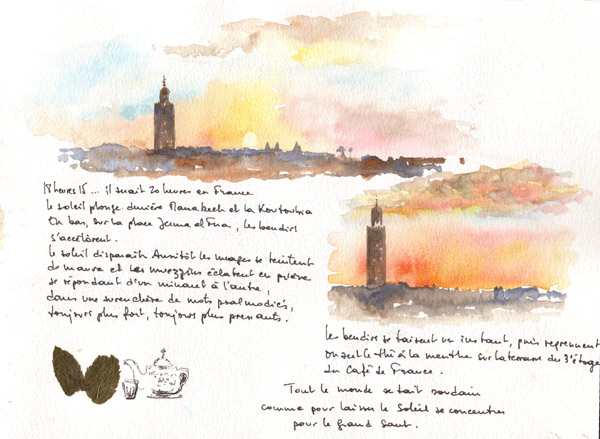 18 heures 15 ... il serait 20 heures en France
le soleil plonge derrière Marrakech et la Koutoubia
En bas, sur la place Jemma el Fna, les bendirs
s'accélèrent.
le soleil disparaît. Aussitôt les nuages se teintent
de mauve et les muezzins éclatent en prière
se répondant d'un minaret à l'autre,
dans une surenchère de mots psalmodiés,
toujours plus fort, toujours plus pressants.
les bendirs se taisent un instant, puis reprennent
on sert le thé à la menthe sur la terrasse du 3e étage
du Café de France.
Tout le monde se tait soudain
comme pour laisser le soleil se concentrer
pour le grand saut.